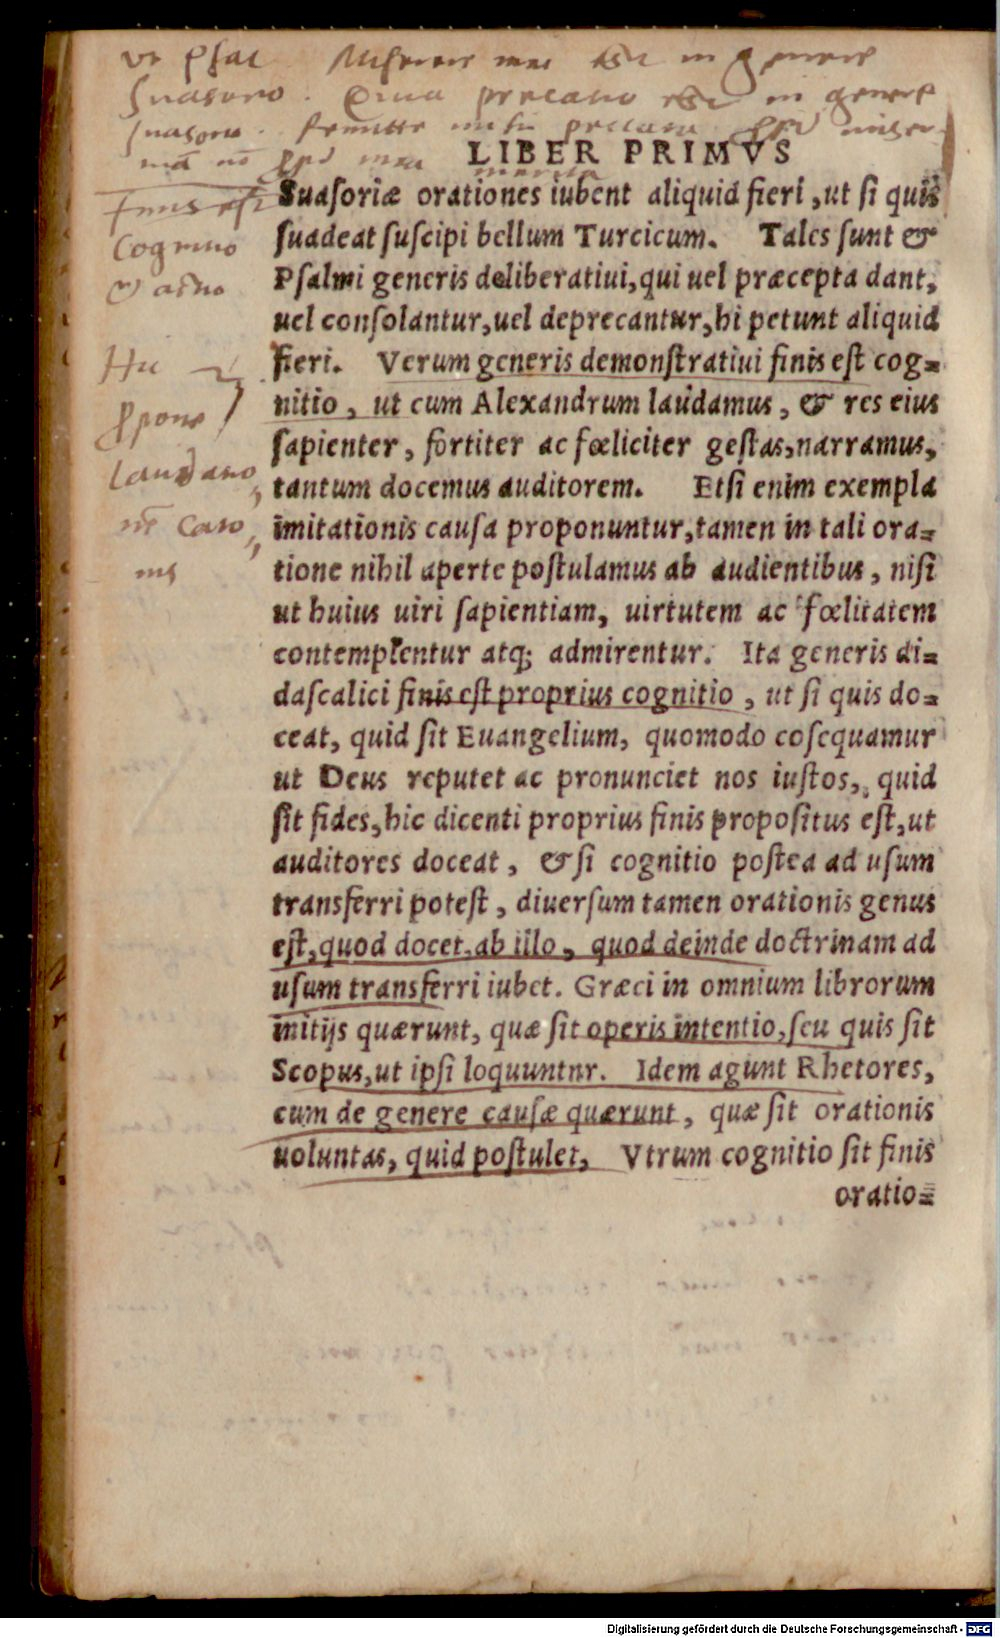 ut Psal Miserere mei est in genere
suasorio. Omnis precatio est in genere
suasorio. Remitte mihi peccata
LIBER PRIMVS
merita
Suasoriæ orationes iubent aliquid fieri, ut si quis
Finis est
suadeat suscipi bellum Turcicum. Tales sunt &
Cognitio
Psalmi generis deliberatiui, qui uel præcepta dant,
& actio
uel consolantur, uel deprecantur, hi petunt aliquid
fieri. Verum generis demonstratiui finis est cog=
nitio, ut cum Alexandrum laudamus, & res eius
sapienter, fortiter ac fœliciter gestas, narramus,
tantum docemus auditorem. Etsi enim exempla
imitationis causa proponuntur, tamen in tali ora=
tione nihil aperte postulamus ab audientibus, nisi
ut huius uiri sapientiam, uirtutem ac fœlitatem
contemplentur atq; admirentur. Ita generis di=
dascalici finis est proprius cognitio, ut si quis do=
ceat, quid sit Euangelium, quomodo cosequamur
ut Deus reputet ac pronunciet nos iustos, quid
sit fides, hic dicenti proprius finis propositus est, ut
auditores doceat, & si cognitio postea ad usum
transferri potest, diuersum tamen orationis genus
est, quod docet, ab illo, quod deinde doctrinam ad
usum transferri iubet. Græci in omnium librorum
initijs quærunt, quæ sit operis intentio, seu quis sit
Scopus, ut ipsi loquuntnr. Idem agunt Rhetores,
cum de genere causæ quærunt, quæ sit orationis
uoluntas, quid postulet, Vtrum cognitio sit finis
oratio=
Digitalisierung gefördert durch die Deutsche Forschungsgemeinschaft - DFG